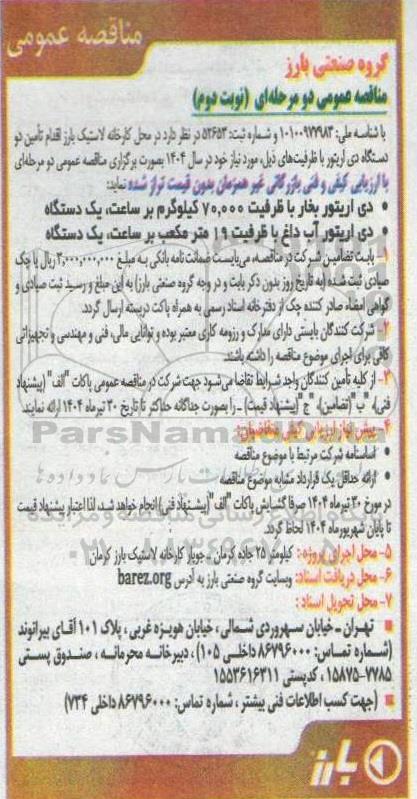 مناقصه عمومی
گروه صنعتی بارز
مناقصه عمومی دو مرحله‌ای (نوبت دوم)
با شناسه ملی: ۱۰۱۰۰۹۷۲۹۸۳ و شماره ثبت: ۵۲۶۵۳ در نظر دارد در محل کارخانه لاستیک بارز اقدام تأمین دو
دستگاه دی اریتور با ظرفیت‌های ذیل، مورد نیاز خود در سال ۱۴۰۴ بصورت برگزاری مناقصه عمومی دو مرحله‌ای
با ارزیابی کیفی و فنی بازرگانی غیر همزمان بدون قیمت تراز شده نماید:
• دی اریتور بخار با ظرفیت ۷۰,۰۰۰ کیلوگرم بر ساعت، یک دستگاه
• دی اریتور آب داغ با ظرفیت ۱۹ متر مکعب بر ساعت، یک دستگاه
۱- بابت تضامین شرکت در مناقصه، می‌بایست ضمانت نامه بانکی به مبلغ ۳,۰۰۰,۰۰۰,۰۰۰ ریال یا چک
صیادی ثبت شده (به تاریخ روز بدون ذکر بابت و در وجه گروه صنعتی بارز) به این مبلغ و رسید ثبت صیادی و
گواهی امضاء صادر کننده چک از دفترخانه اسناد رسمی به همراه پاکت دربسته ارسال گردد.
۲- شرکت کنندگان بایستی دارای مدارک و رزومه کاری معتبر بوده و توانایی مالی، فنی و مهندسی و تجهیزاتی
کافی برای اجرای موضوع مناقصه را داشته باشند.
۳- از کلیه تأمین کنندگان واجد شرایط تقاضا می‌شود جهت شرکت در مناقصه عمومی پاکات "الف" (پیشنهاد
فنی)، "ب" (تضامین)، "ج" (پیشنهاد قیمت) ـ را بصورت جداگانه حداکثر تا تاریخ ۳۰ تیرماه ۱۴۰۴ ارائه نمایند.
۴- پیش نیاز ارزیابی کیفی متقاضیان:
• اساسنامه شرکت مرتبط با موضوع مناقصه
• ارائه حداقل یک قرارداد مشابه موضوع مناقصه
در مورخ ۳۰ تیرماه ۱۴۰۴ صرفا گشایش پاکات "الف" (پیشنهاد فنی) انجام خواهد شد، لذا اعتبار پیشنهاد قیمت
تا پایان شهریورماه ۱۴۰۴ لحاظ گردد.
۵- محل اجرای پروژه: کیلومتر ۲۵ جاده کرمان ـ جوپار کارخانه لاستیک بارز کرمان
۶- محل دریافت اسناد: وبسایت گروه صنعتی بارز به آدرس barez.org
۷- محل تحویل اسناد:
• تهران ـ خیابان سهروردی شمالی، خیابان هویزه غربی، پلاک ۱۰۱ آقای بیرانوند
(شماره تماس: ۸۶۷۹۶۰۰۰ داخلی ۱۰۵)، دبیرخانه محرمانه، صندوق پستی
۱۵۸۷۵-۷۷۸۵، کدپستی ۱۵۵۳۶۱۶۳۱۱
• (جهت کسب اطلاعات فنی بیشتر، شماره تماس: ۸۶۷۹۶۰۰۰ داخلی ۷۳۴)
بارز
ParsNamadData